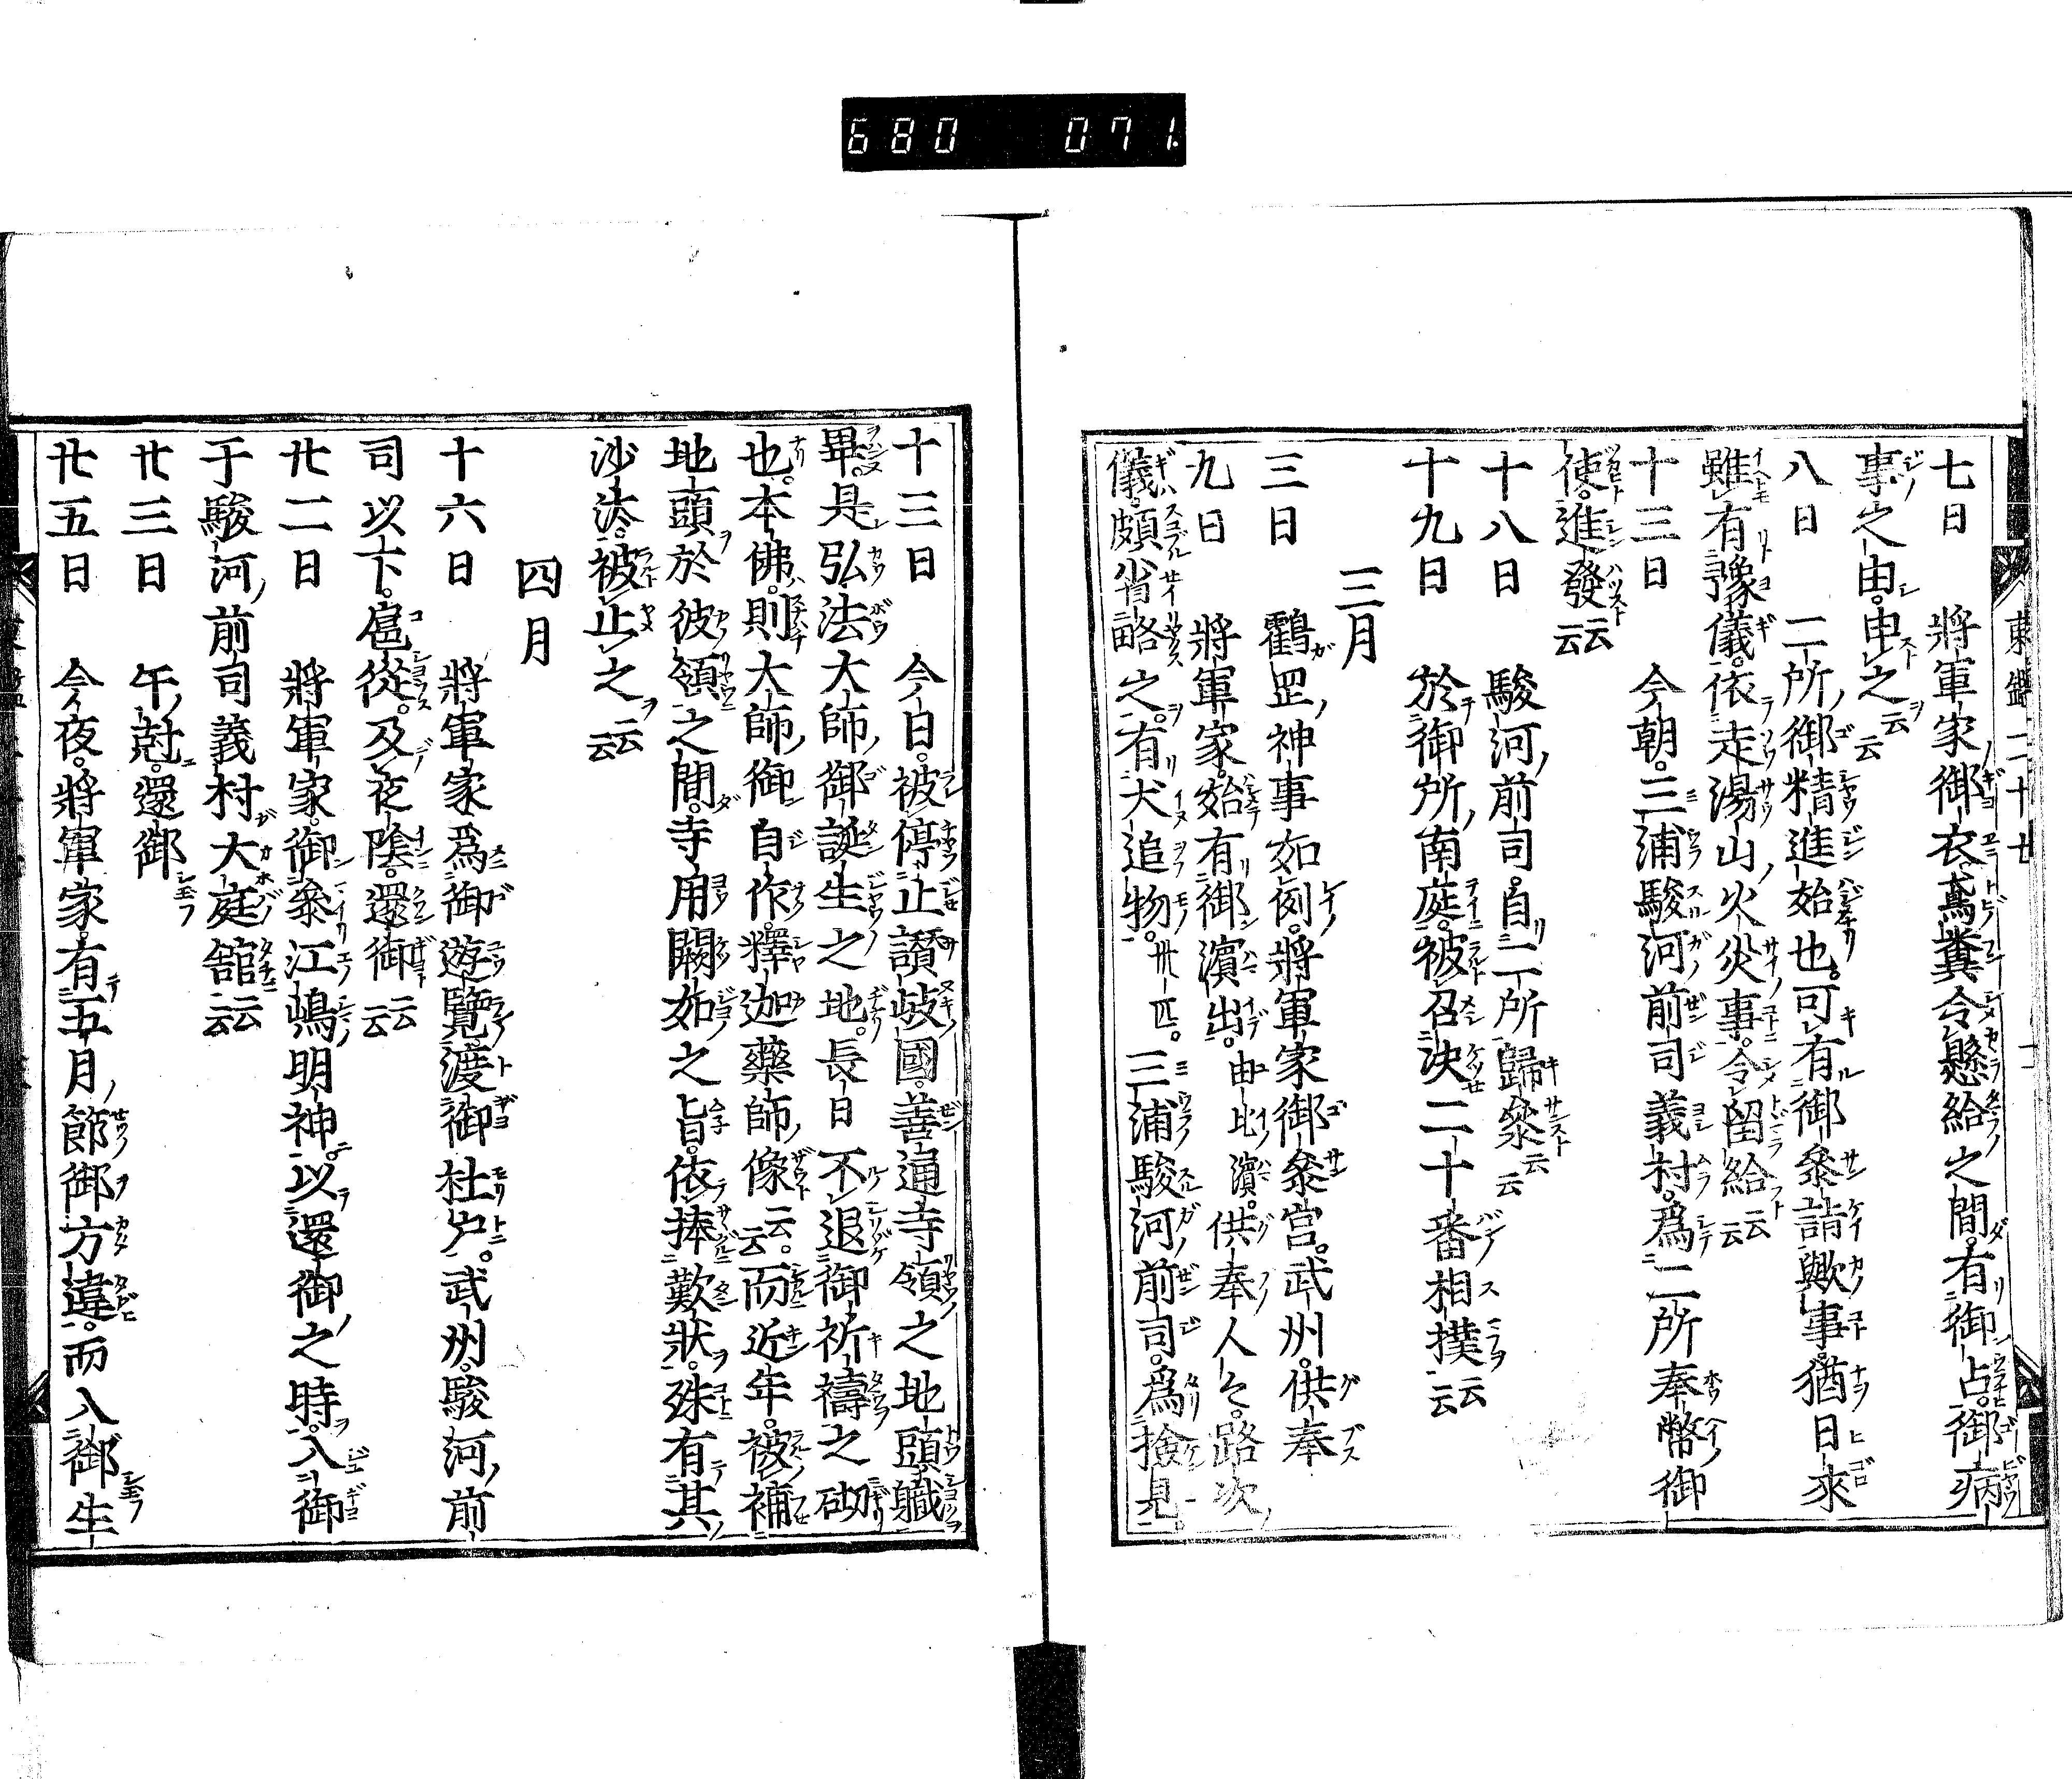 680 071
東鑑二十七
七日 將軍家御衣鳶糞令懸給之間。有御占。御病
事之由。申之云云
八日 二所御精進始也。可有御參詣歟事。猶日來
雖有豫儀。依走湯山火災事。令留給云云
十三日 今朝。三浦駿河前司義村。爲二所奉幣御
使。進發云云
十八日 駿河前司。自二所歸參云云
十九日 於御所南庭。被召決二十番相撲云云
三月
三日 鶴岡神事如例。將軍家御參宮。武州。供奉
九日 將軍家。始有御濱出。由比濱。供奉人々。路次
儀。頗省略之。有犬追物。廿匹。三浦駿河前司。爲撿見。
十三日 今日。被停止讚岐國。善通寺領之地頭職
畢。是弘法大師御誕生之地。長日不退御祈禱之砌
也。本佛。則大師御自作。釋迦藥師像云云。而近年。被補
地頭於彼領之間。寺用闕如之旨。依捧歎狀。殊有其
沙汰。被止之云云
四月
十六日 將軍家爲御遊覽。渡御杜戸。武州。駿河前
司以下。扈從。及夜陰。還御云云
廿二日 將軍家。御參江嶋明神。以還御之時。入御
于駿河前司義村大庭舘云云
廿三日 午尅。還御
廿五日 今夜。將軍家。有五月節御方違。而入御生